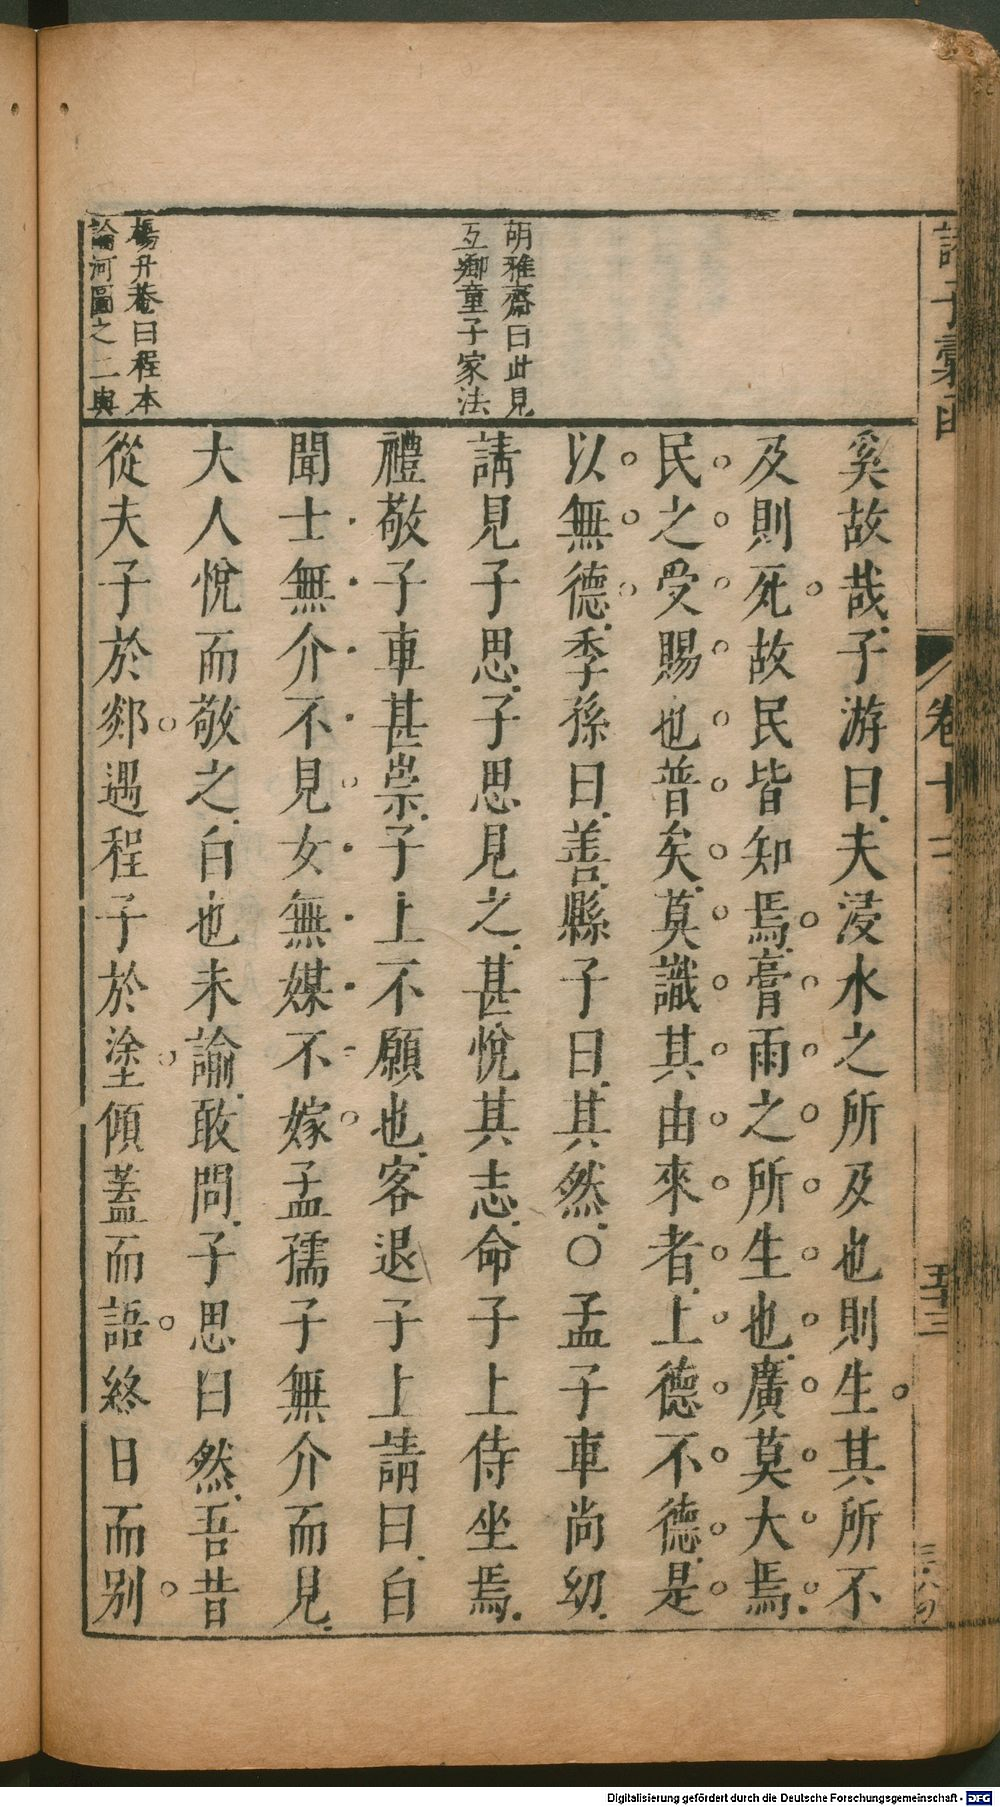 諸子彙函
卷十二
胡雅齋曰此見
互鄉童子家法
楊升菴曰程本
論河圖之二與
奚故哉子游曰夫浸水之所及也則生其所不
及則死故民皆知焉膏雨之所生也廣莫大焉
民之受賜也普矣莫識其由來者上德不德是
以無德季孫曰善縣子曰其然○孟子車尚幼
請見子思子思見之甚悅其志命子上侍坐焉
禮敬子車甚崇子上不願也客退子上請曰白
聞士無介不見女無媒不嫁孟孺子無介而見
大人悅而敬之白也未諭敢問子思曰然吾昔
從夫子於郯遇程子於塗傾蓋而語終日而別
Digitalisierung gefördert durch die Deutsche Forschungsgemeinschaft - DFG